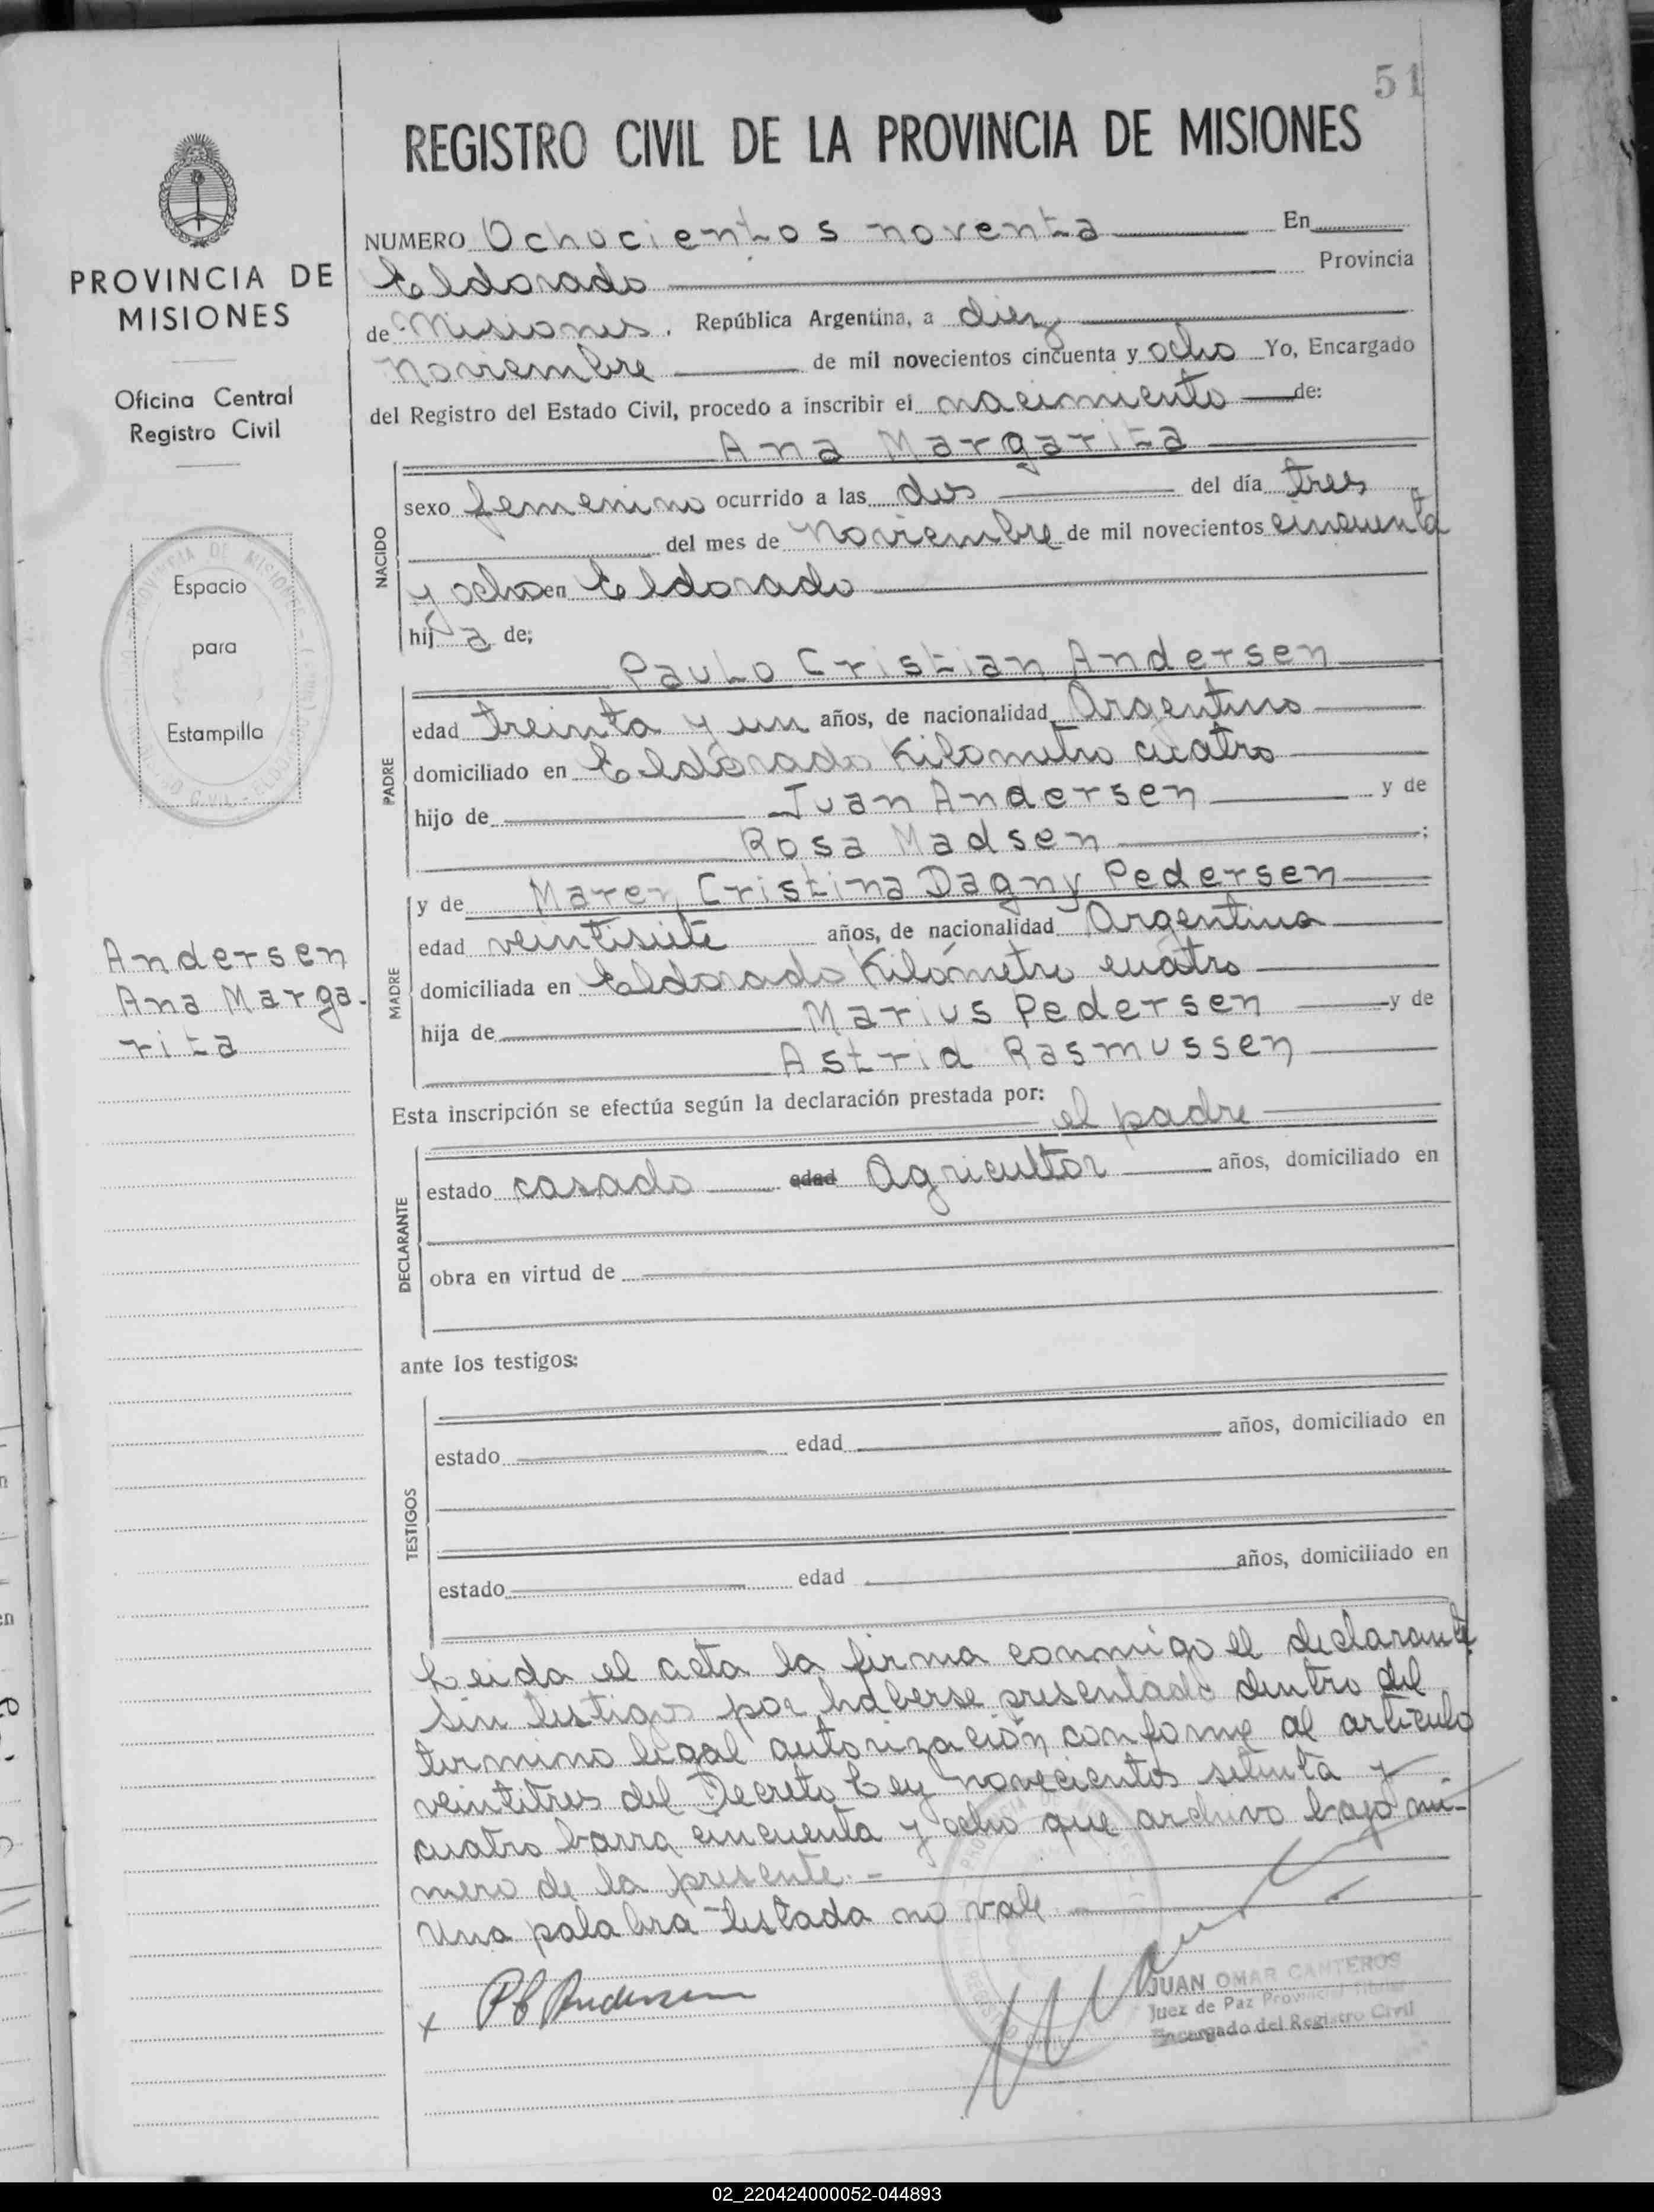 51
REGISTRO CIVIL DE LA PROVINCIA DE MISIONES
PROVINCIA DE
MISIONES
Oficina Central
Registro Civil
Espacio
para
Estampilla
Andersen
Ana Marga-
rita
NUMERO Ochocientos noventa En
Eldorado Provincia
de Misiones. República Argentina, a diez
Noviembre de mil novecientos cincuenta y ocho Yo, Encargado
del Registro del Estado Civil, procedo a inscribir el nacimiento de:
Ana Margarita
NACIDO
sexo femenino ocurrido a las dos del día tres
del mes de Noviembre de mil novecientos cincuenta
y ocho en Eldorado
hij a de;
Paulo Cristian Andersen
PADRE
edad treinta y un años, de nacionalidad Argentino
domiciliado en Eldorado Kilometro cuatro
hijo de Juan Andersen y de
Rosa Madsen ;
y de Maren Cristina Dagny Pedersen
MADRE
edad veintisiete años, de nacionalidad Argentina
domiciliada en Eldorado Kilómetro cuatro
hija de Marius Pedersen y de
Astrid Rasmussen
Esta inscripción se efectúa según la declaración prestada por: el padre
DECLARANTE
estado casado edad Agricultor años, domiciliado en
obra en virtud de
ante los testigos:
TESTIGOS
estado edad años, domiciliado en
estado edad años, domiciliado en
Leida el acta la firma conmigo el declarante
sin testigos por haberse presentado dentro del
termino legal autorización conforme al articulo
veintitres del Decreto Ley novecientos setenta y
cuatro barra cincuenta y ocho que archivo bajo nú-
mero de la presente.-
Una palabra testada no vale
x P C Andersen
JUAN OMAR CANTEROS
Juez de Paz Provincial Titular
Encargado del Registro Civil
02_220424000052-044893